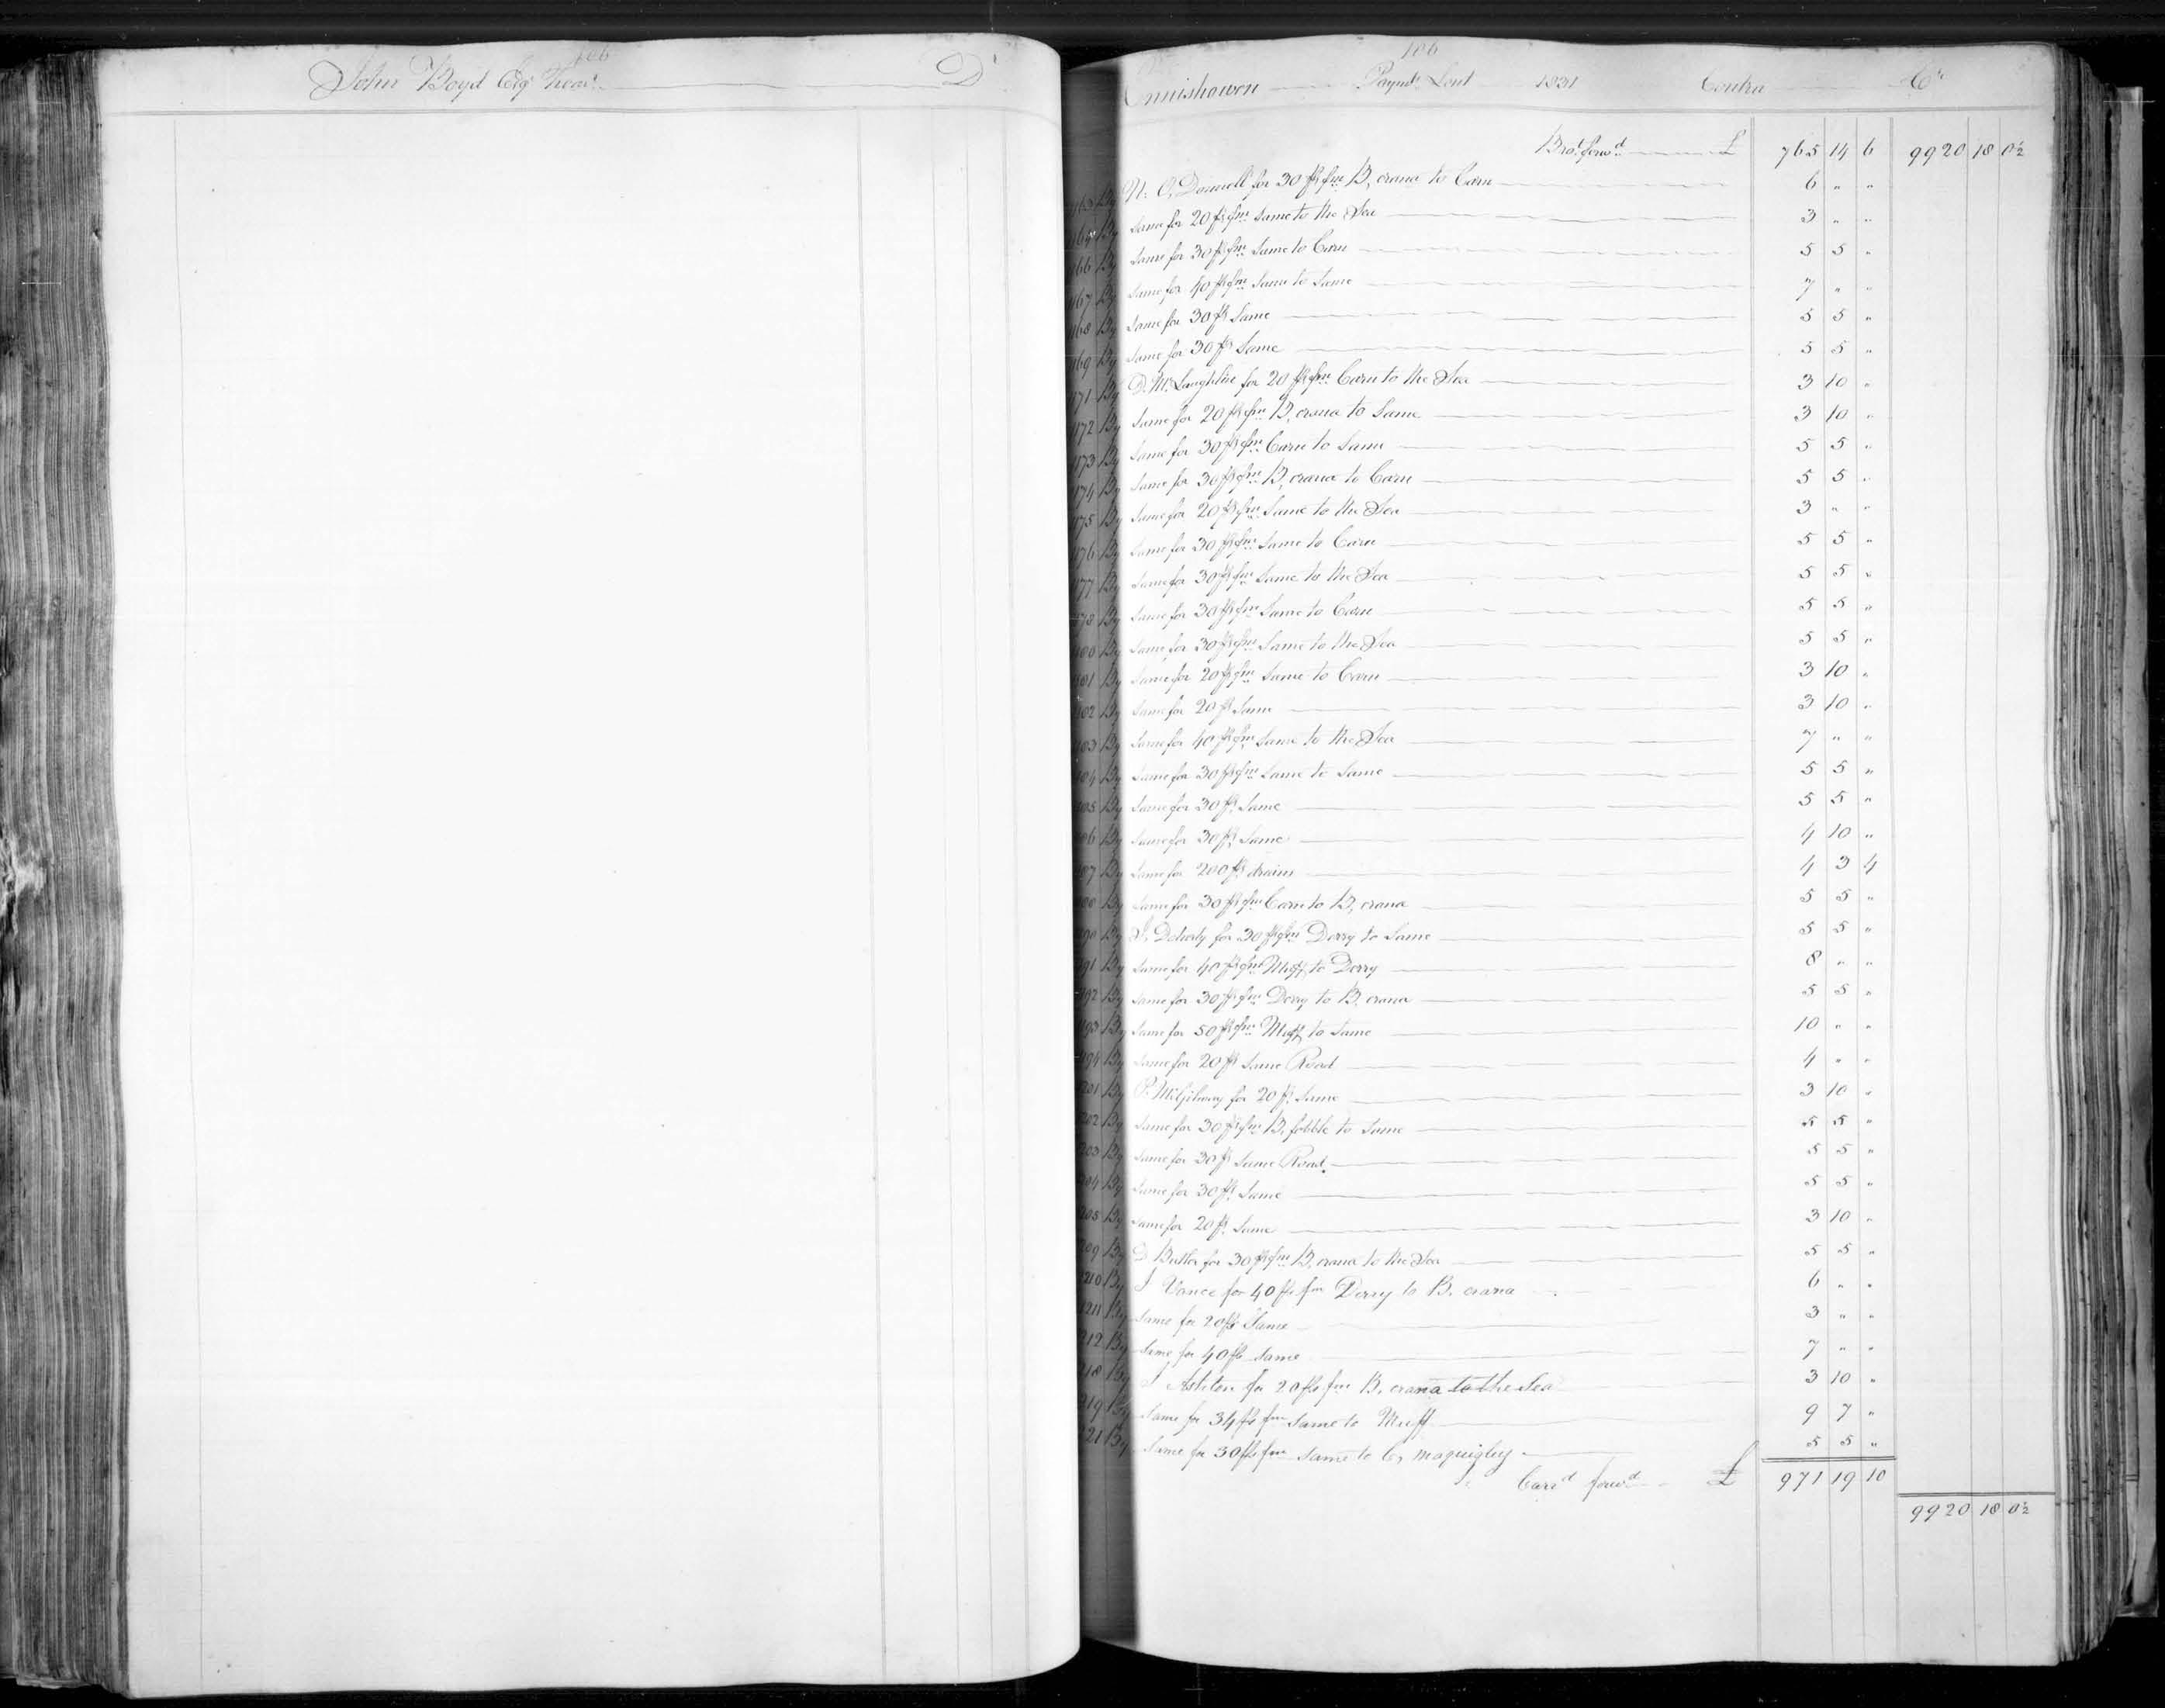 106
John Boyd Esqr Treasr. Dr
106
Ennishowen Paymts Lent 1831 Contra Cr
Brot. forwd. £ 765 14 6 9920 18 0½
165 By N. O'Donnell for 30 ps fm B, crana to Carn 6 " "
By Same for 20 ps fm Same to the Sea 3 " "
166 By Same for 30 ps fm Same to Carn 5 5 "
167 By Same for 40 ps fm Same to Same 7 " "
168 By Same for 30 ps Same 5 5 "
169 By Same for 30 ps Same 5 5 "
171 By D. McLaughlin for 20 ps fm Carn to the Sea 3 10 "
172 By Same for 20 ps fm B, crana to Same 3 10 "
173 By Same for 30 ps fm Carn to Same 5 5 "
174 By Same for 30 ps fm B, crana to Carn 5 5 "
175 By Same for 20 ps fm Same to the Sea 3 " "
176 By Same for 30 ps fm Same to Carn 5 5 "
177 By Same for 30 ps fm Same to the Sea 5 5 "
178 By Same for 30 ps fm Same to Carn 5 5 "
180 By Same for 30 ps fm Same to the Sea 5 5 "
181 By Same for 20 ps fm Same to Carn 3 10 "
182 By Same for 20 ps Same 3 10 "
183 By Same for 40 ps fm Same to the Sea 7 " "
184 By Same for 30 ps fm Same to Same 5 5 "
185 By Same for 30 ps Same 5 5 "
186 By Same for 30 ps Same 4 10 "
187 By Same for 200 ps drains 4 3 4
188 By Same for 30 ps fm Carn to B, crana 5 5 "
190 By J. Doherty for 30 ps fm Derry to Same 5 5 "
191 By Same for 40 ps fm Muff to Derry 8 " "
192 By Same for 30 ps fm Derry to B. crana 5 5 "
193 By Same for 50 ps fm Muff to Same 10 " "
194 By Same for 20 ps Same Road 4 " "
201 By P. McGilway for 20 ps Same 3 10 "
202 By Same for 30 ps fm B, fobble to Same 5 5 "
203 By Same for 30 ps Same Road. 5 5 "
204 By Same for 30 ps Same 5 5 "
205 By Same for 20 ps Same 3 10 "
209 By D Butler for 30 ps fm B, crana to the Sea 5 5 "
210 By J Vance for 40 ps fm Derry to B. crana 6 " "
211 By Same for 20 ps Same 3 " "
212 By Same for 40 ps Same 7 " "
218 By J Ashton for 20 ps fm B, crana to the Sea 3 10 "
219 By Same for 34 ps fm Same to Muff 9 7 "
221 By Same for 30 ps fm Same to C, maquigley 5 5 "
Carrd forwd £ 971 19 10
9920 18 0½